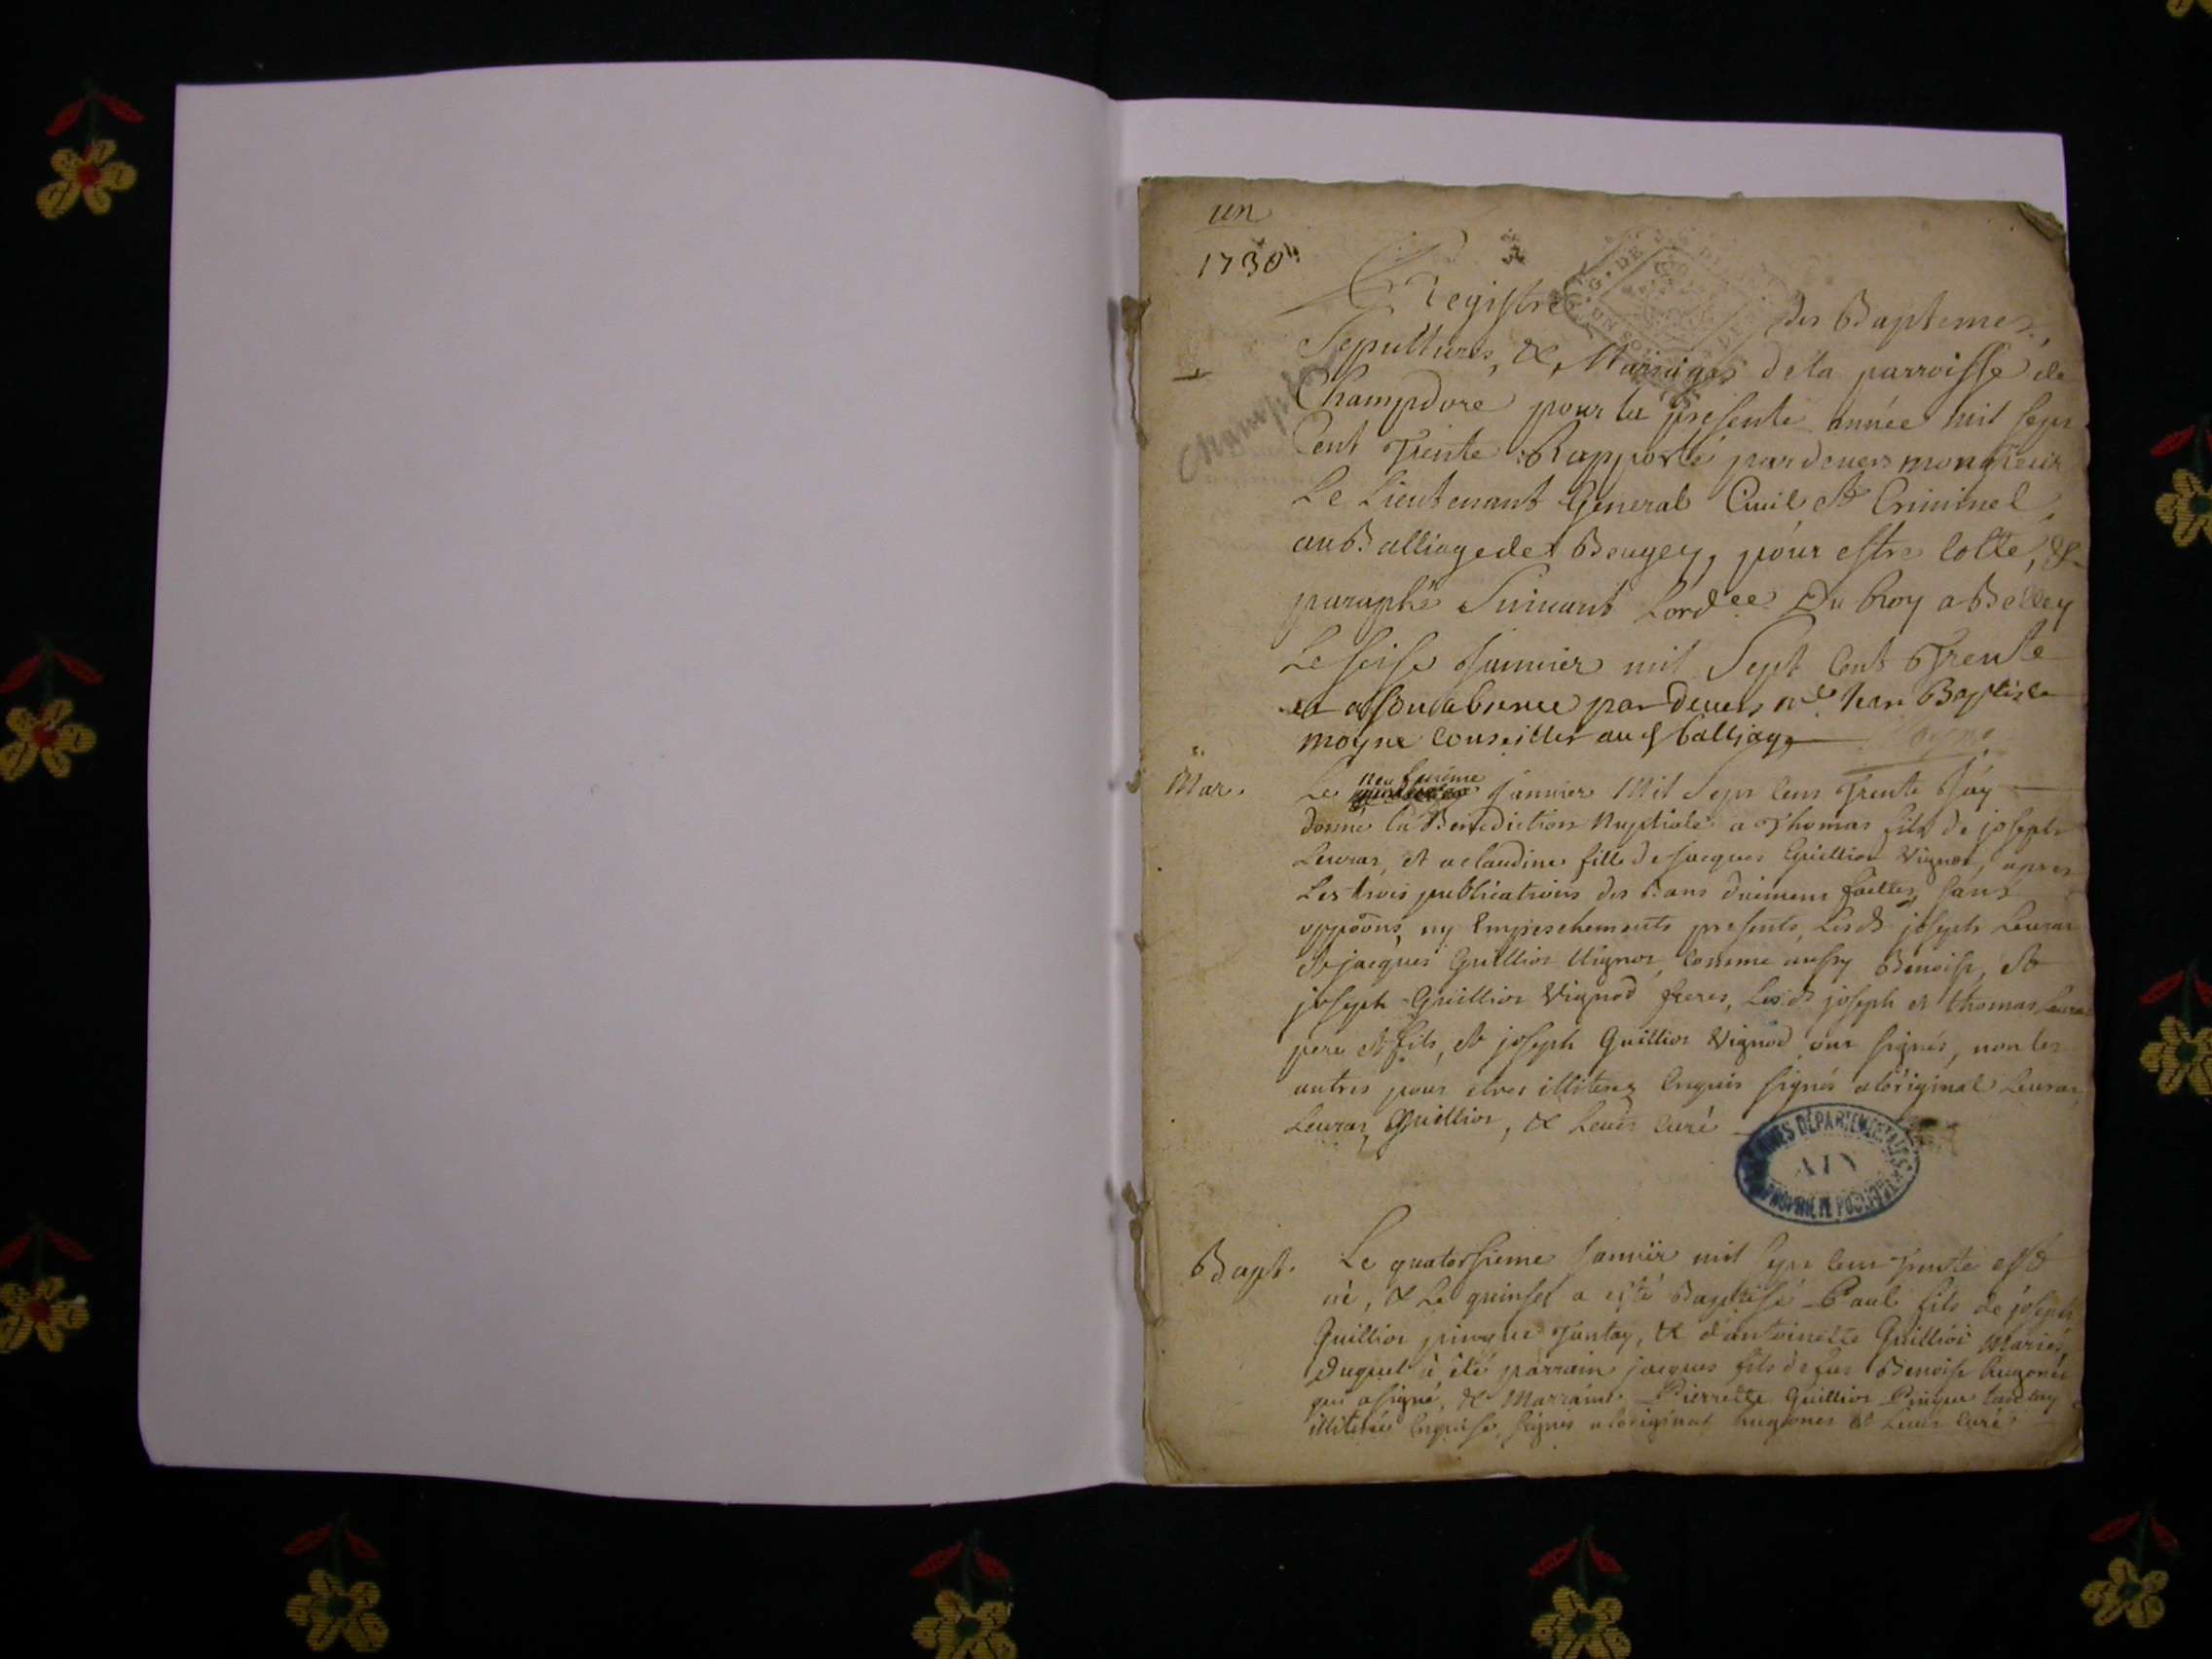 un
1730
Registre des Baptemes,
Sepultures, &, Mariages de la parroisse de
Champdore pour la presente année mil sept
Cent Trente Rapporté pardevers monsieur
Le Lieutenant General Civil et Criminel
au Balliage de Beugey, pour estre Cotté, &
paraphé Suivant Lord.ee Du Roy a Belley
Le seise Janvier mil Sept Cent Trente
et a son absence par devers Jean Baptiste
moyne Conseiller aud balliage
Champdor
Mar.
Le neufvieme Janvier Mil Sept Cent Trente Jáy
donné la Benediction Nuptiale a Thomas fils de joseph
Leuras, et a claudine fille de Jacques Guillion Vignod, apres
Les trois publications des Bans duement faittes, sans
oppoons, ny Empeschements presents, Lesd. joseph Leuras
& jacques Guillion Vignod, comme aussy Benoist, et
joseph Guillion Vignod freres, Lesd. joseph et thomas Leuras
pere et fils, et joseph Guillion Vignod ont signés, non les
autres pour etres illiterez Enquis signés a loriginal Leuras,
Leuras, Guillion, & curé
ARCHIVES DÉPARTEMENTALES
AIN
PROPRIÉTÉ PUBLIQUE
Bapt.
Le quatorsieme Janvier mil sept cent trente est
né, & Le quinse a esté Baptisé Paul fils de joseph
Guillion Tantay, & d'antoinette Guillion Mariés,
Duquel à été parrain jacques fils de feu Benoist hugonet
qui a signé, & Marraine Pierrette Guillion tantay
illiterée Enquise, signés a loriginal hugonet et curé